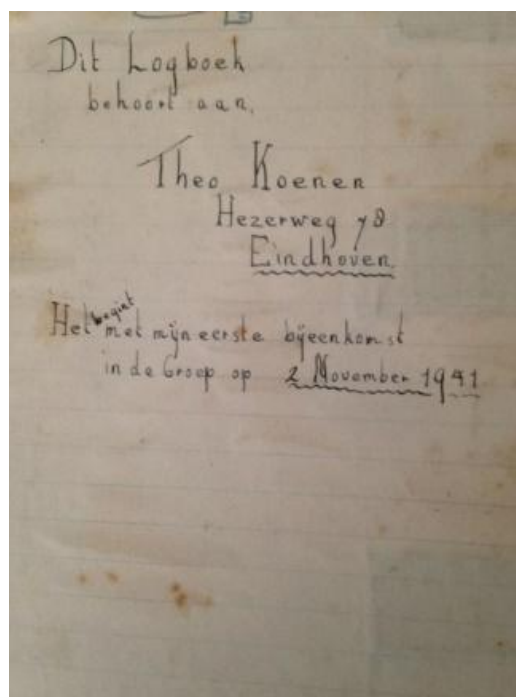 Dit Logboek
behoort aan,
Theo Koenen
Hezerweg 78
Eindhoven.
Het begint met mijn eerste bijeenkomst
in de Groep op 2 November 1941